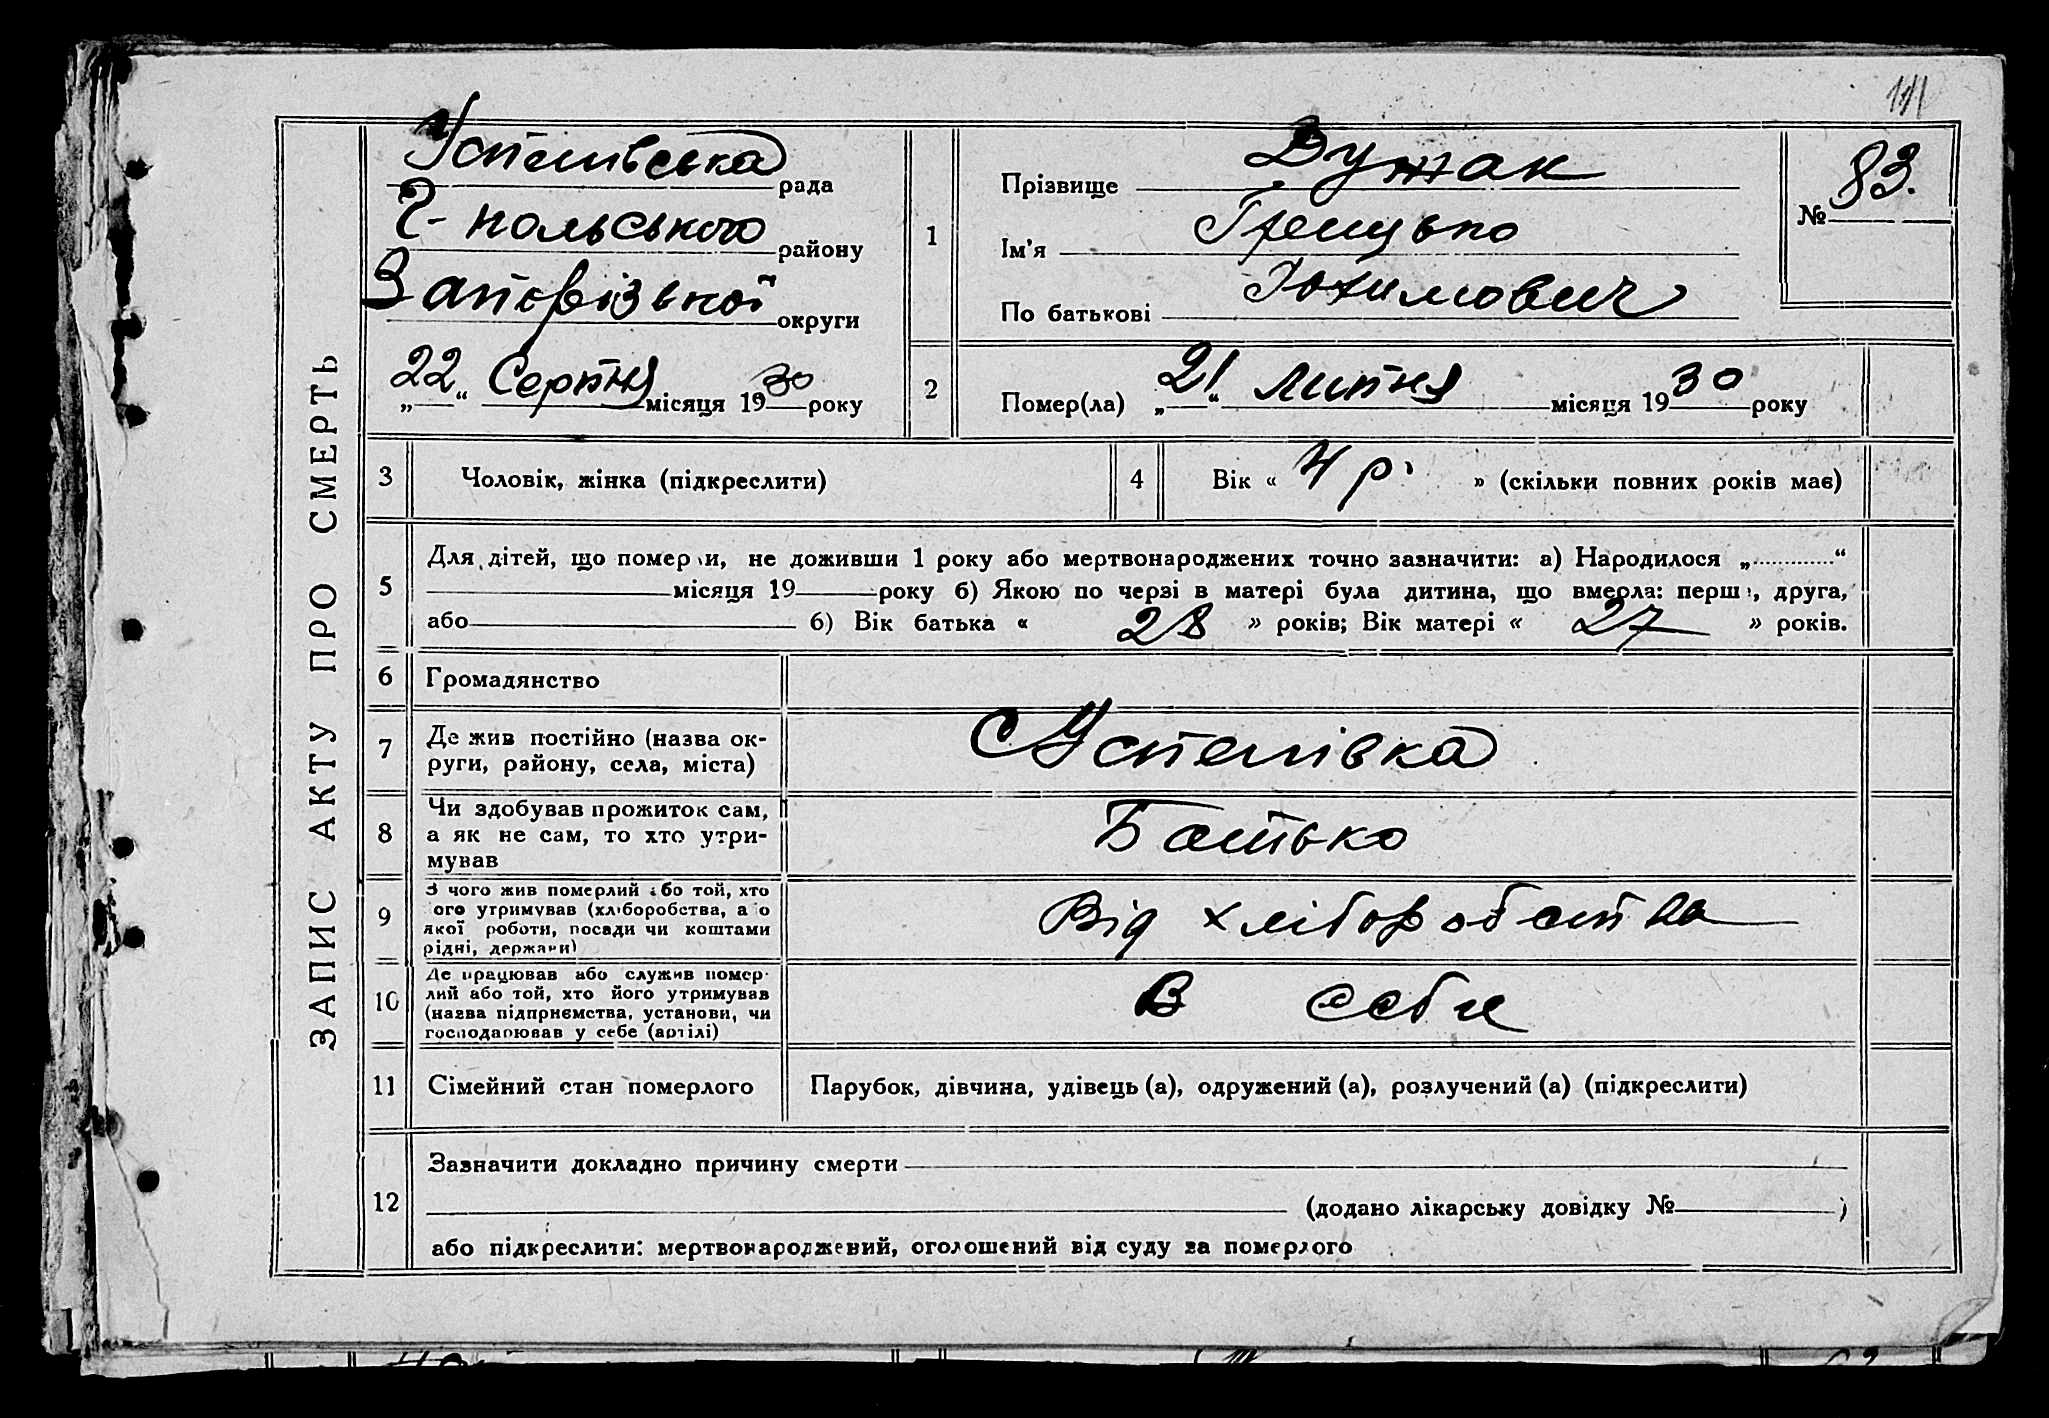 141
ЗАПИС АКТУ ПРО СМЕРТЬ
Успенівська рада
Г-польського району
Запорізької округи
„22“ Серпня місяця 1930 року
1
Прізвище Дужак
Ім'я Грицько
По батькові Юхимович
№ 83.
2
Помер(ла) „21“ липня місяця 1930 року
3 Чоловік, жінка (підкреслити)
4 Вік « 4 р. » (скільки повних років має)
5 Для дітей, що померли, не доживши 1 року або мертвонароджених точно зазначити: а) Народилося „ “
місяця 19 року б) Якою по черзі в матері була дитина, що вмерла: перша, друга,
або б) Вік батька « 28 » років; Вік матері « 27 » років.
6 Громадянство
7 Де жив постійно (назва ок-
руги, району, села, міста)
С Успенівка
8 Чи здобував прожиток сам,
а як не сам, то хто утри-
мував
Батько
9 З чого жив померлий або той, хто
ого утримував (хліборобства, а о
якої роботи, посади чи коштами
рідні, держави)
Від хліборобства
10 Де працював або служив помер-
лий або той, хто його утримував
(назва підприємства, установи, чи
господарював у себе (артілі)
В себе
11 Сімейний стан померлого
Парубок, дівчина, удівець (а), одружений (а), розлучений (а) (підкреслити)
12 Зазначити докладно причину смерти
(додано лікарську довідку № )
або підкреслити: мертвонароджений, оголошений від суду за померлого